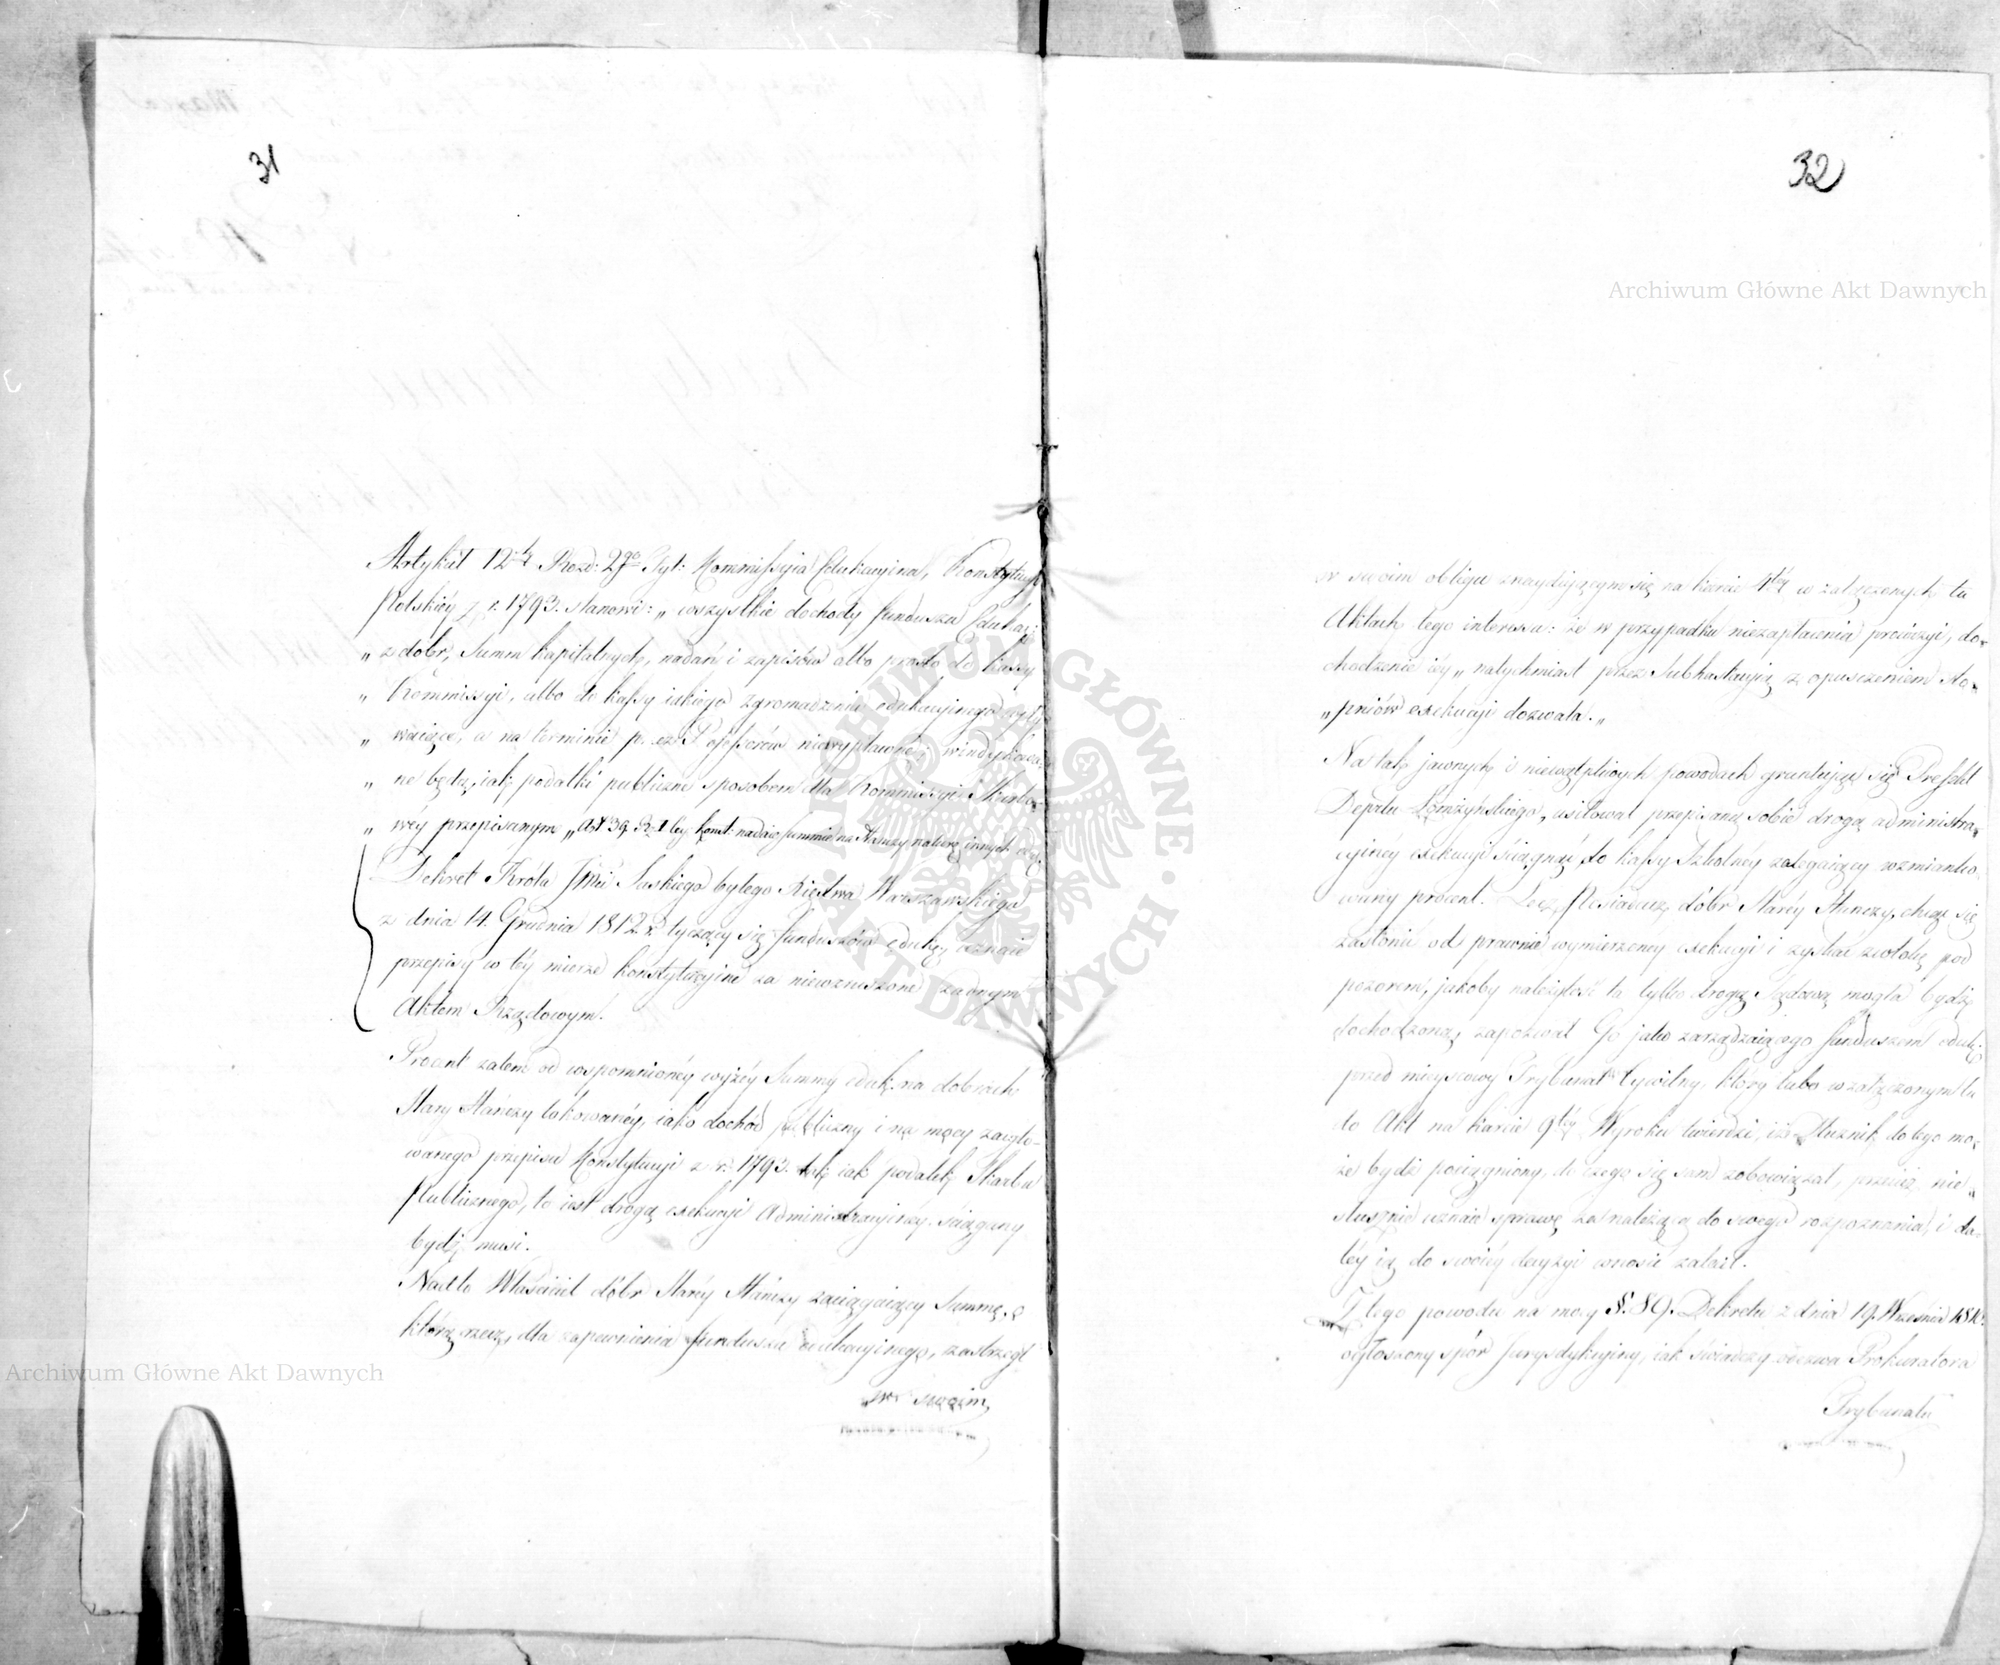 31
Artykuł 12ty Rozd: 2go Tyt: Kommissyia Edukacyina, Konstytucyi
Polskiéy z r. 1793. stanowi: „wszystkie dochody funduszu Edukac:
„z dobr, Summ kapitalnych, nadań i zapisów albo prosto do kassy
„Kommissyi, albo do kassy iakiego zgromadzenia edukacyinego
„ a na terminie przez Possessorów niewypłacone, windykowa-
„ne będą, iak podatki publiczne sposobem dla Kommissyi Skarbo-
„wéy przepisanym „Art 39. R. I tey konst: nadaie summie na Stańczy naturę innych edu:
Dekret Króla Jmci Saskiego byłego Xięstwa Warszawskiego
z dnia 14. Grudnia 1812 r. tyczący się funduszów eduk: uznaie
przepisy w téy mierze konstytucyine za niewzruszone żadnym
Aktem Rządowym.
Procent zatem od wspomnionéy wyżéy Summy eduk: na dobrach
Staréy Stańczy lokowanéy, iako dochód publiczny i na mocy zacyto-
wanego przepisu Konstytucyi z r. 1793. tak iak podatek Skarbu
Publicznego, to iest drogą exekucyi Administracyinéy ściągany
bydź musi.
Nadto Właściciel dóbr Staréy Stańczy zaciągaiący Summę, o
którą rzecz, dla zapewnienia funduszu edukacyinego, zastrzegł
w swoim
32
w swoim obligu znayduiącym się na karcie 4téy w załączonych tu
Aktach tego interessu: że w przypadku niezapłacenia prowizyi, do-
chodzenie iéy „natychmiast przez Subhastacyią z opuszczeniem sto-
„pniów exekucyi dozwala.„
Na tak jawnych i niewątpliwych powodach gruntuiąc się Prefekt
Depatu Łomżyńskiego, usiłował przepisaną sobie drogą administra-
cyiney exekucyi ściągnąć do kassy Szkolnéy zalegaiący wzmianko-
wany procent. Lecz Posiadacz dóbr Staréy Stańczy, chcąc się
zasłonić od prawnie wymierzoney exekucyi i zyskać zwłokę pod
pozorem, jakoby należytość ta tylko drogą Sądową mogła bydź
dochodzoną, zapozwał Go jako zarządzaiącego funduszem eduk:
przed mieyscowy Trybunał Cywilny, który lubo w załączonym tu
do Akt na karcie 9téy Wyroku twierdzi, iż Dłużnik do tego mo-
że bydź pociągniony, do czego się sam zobowiązał, przecież nie-
słusznie uznaie sprawę za należącą do swego rozpoznania, i da-
léy ią do swoiéy decyzyi wnosić zalecił.
Z tego powodu na mocy §. 89. Dekretu z dnia 19. Września 1810.
ogłoszony spór Jurysdykcyiny, iak świadczy odezwa Prokuratora
Trybunału
Archiwum Główne Akt Dawnych
Archiwum Główne Akt Dawnych
ARCHIWUM GŁÓWNE · AKT DAWNYCH ·